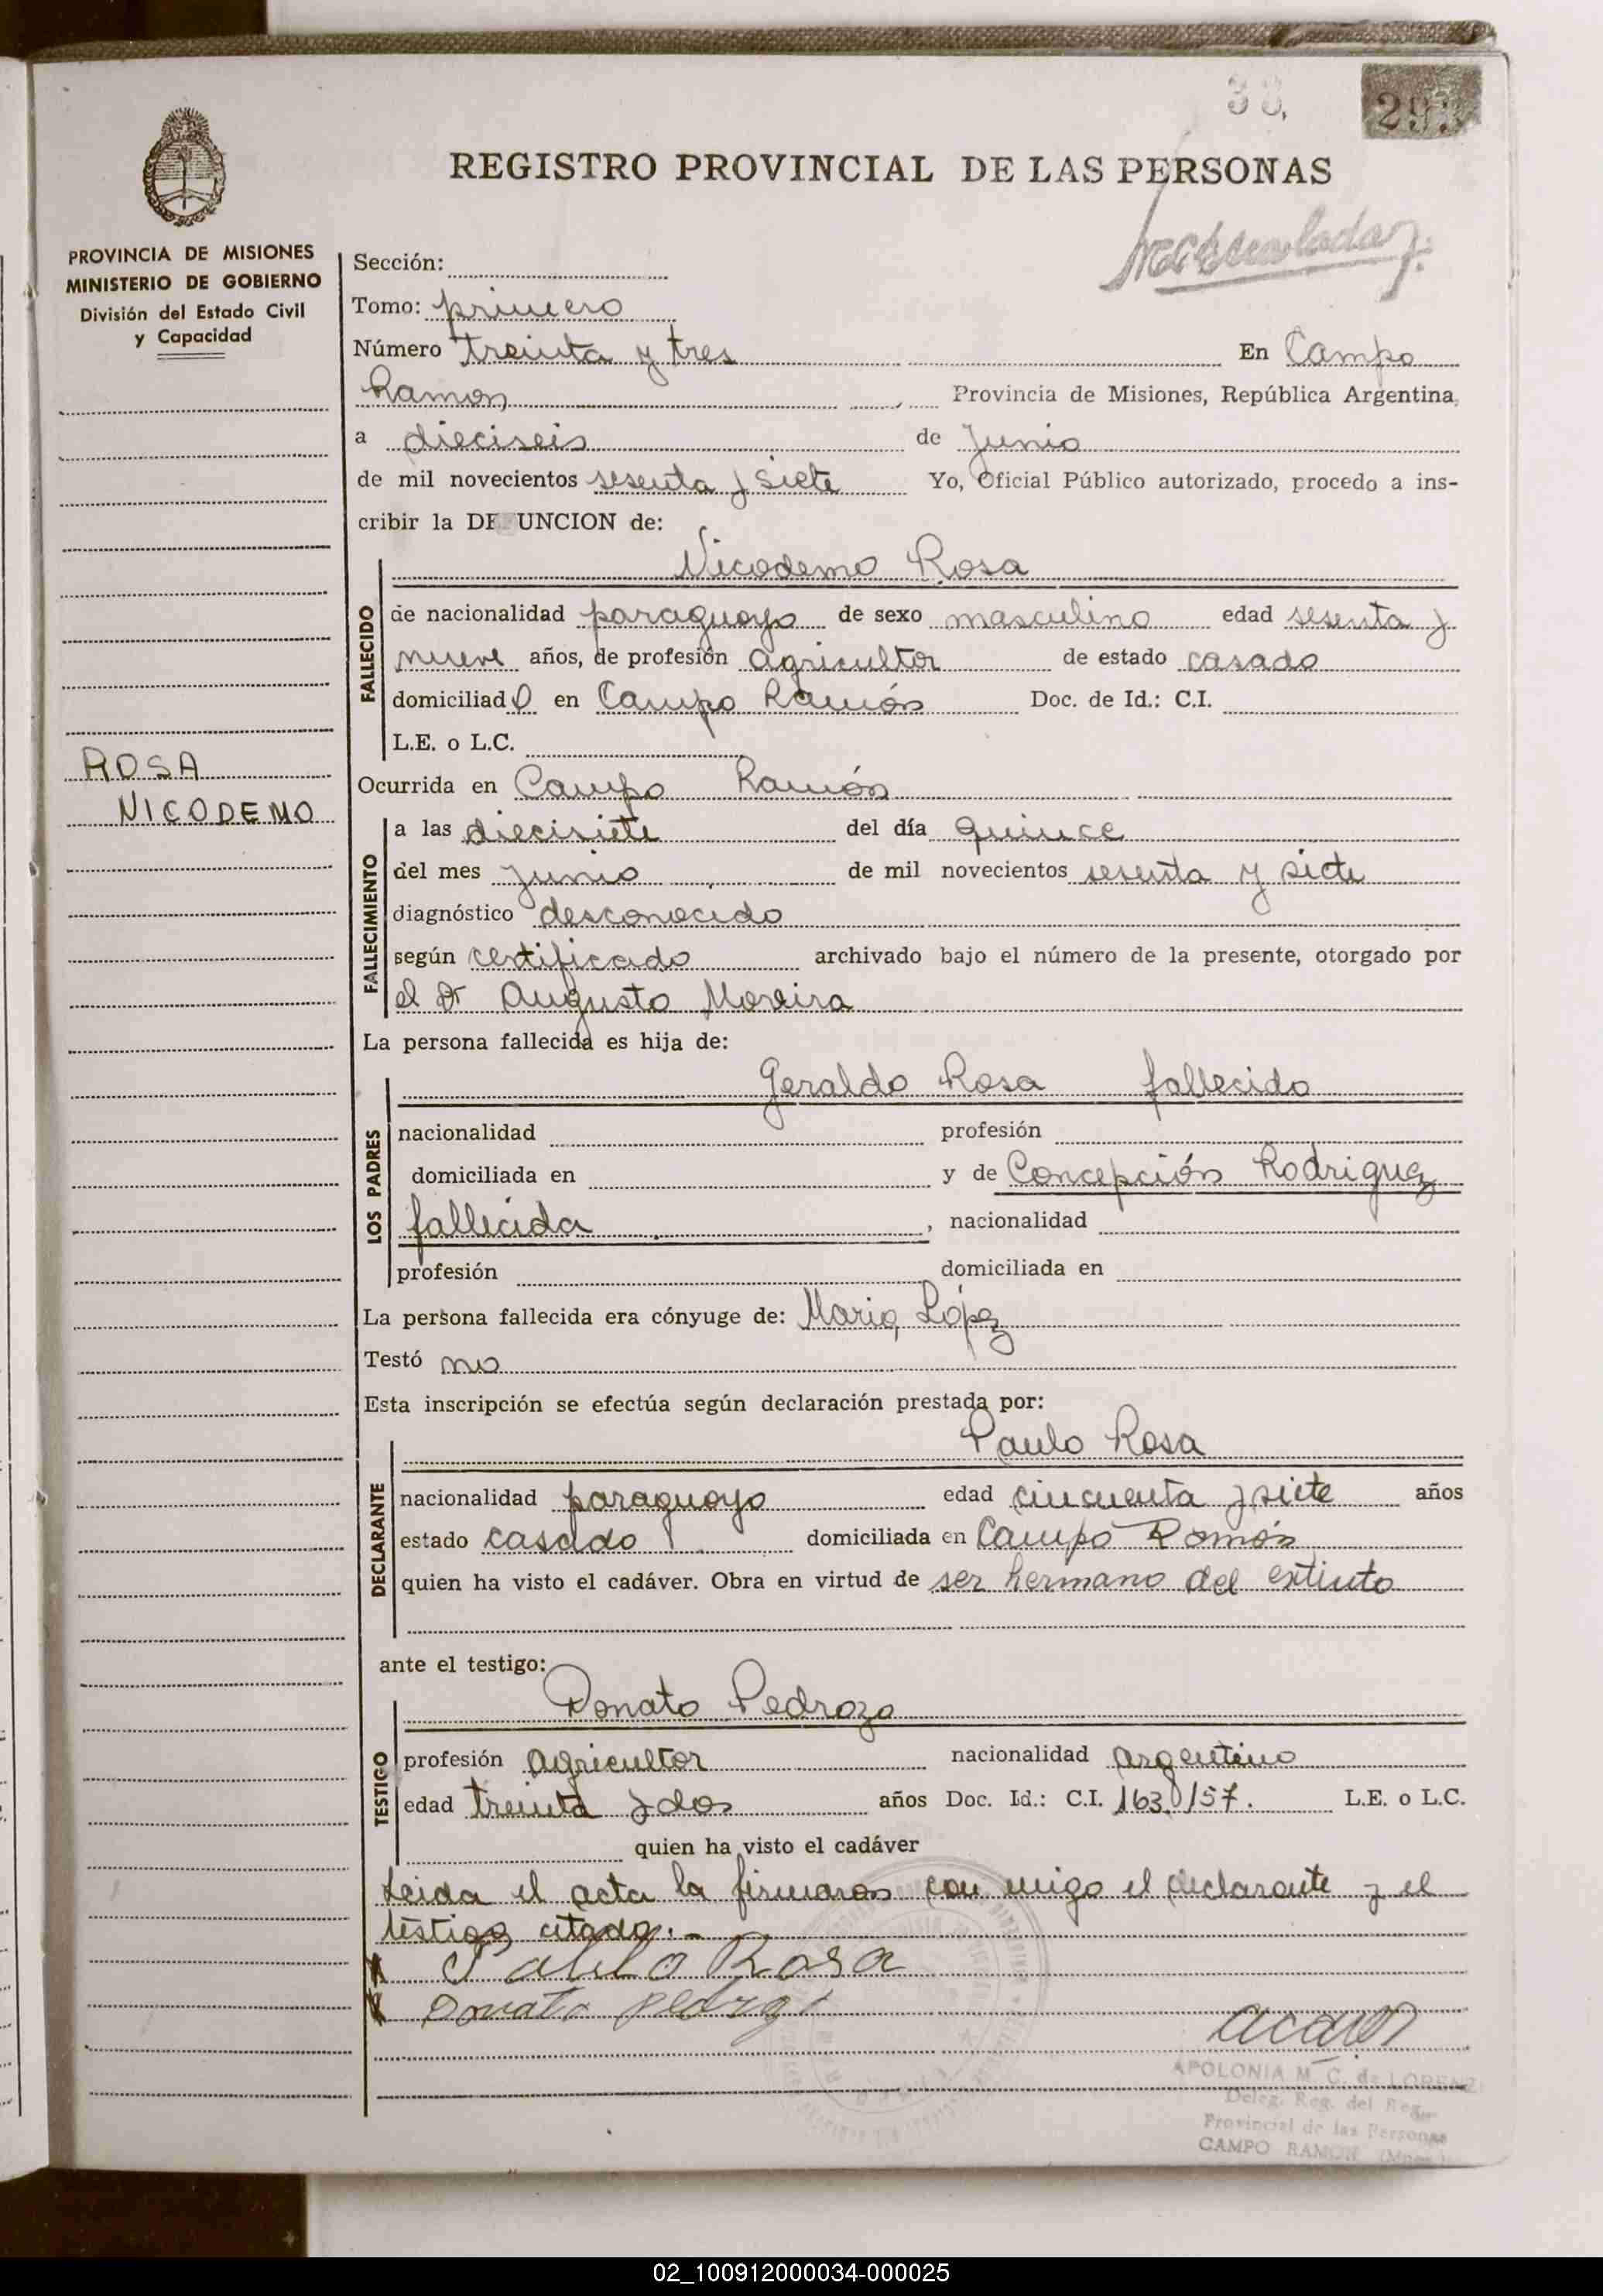 33.
REGISTRO PROVINCIAL DE LAS PERSONAS
PROVINCIA DE MISIONES
MINISTERIO DE GOBIERNO
División del Estado Civil
y Capacidad
ROSA
NICODEMO
Sección:
Tomo: primero
Número treinta y tres En Campo
Ramon Provincia de Misiones, República Argentina,
a dieciseis de Junio
de mil novecientos sesenta y siete Yo, Oficial Público autorizado, procedo a ins-
cribir la DEFUNCION de:
Nicodemo Rosa
FALLECIDO
de nacionalidad paraguayo de sexo masculino edad sesenta y
nueve años, de profesión agricultor de estado casado
domiciliado en Campo Ramón Doc. de Id.: C.I.
L.E. o L.C.
Ocurrida en Campo Ramón
FALLECIMIENTO
a las diecisiete del día quince
del mes junio de mil novecientos sesenta y siete
diagnóstico desconocido
según certificado archivado bajo el número de la presente, otorgado por
el Dr Augusto Moreira
La persona fallecida es hija de:
LOS PADRES
Geraldo Rosa fallecido
nacionalidad profesión
domiciliada en y de Concepción Rodriguez
fallecida, nacionalidad
profesión domiciliada en
La persona fallecida era cónyuge de: Maria López
Testó no
Esta inscripción se efectúa según declaración prestada por:
DECLARANTE
Paulo Rosa
nacionalidad paraguayo edad cincuenta y siete años
estado casado domiciliada en Campo Ramón
quien ha visto el cadáver. Obra en virtud de ser hermano del extinto
ante el testigo:
TESTIGO
Donato Pedrozo
profesión agricultor nacionalidad argentino
edad treinta y dos años Doc. Id.: C.I. 163.157. L.E. o L.C.
quien ha visto el cadáver
Leida el acta la firmaron con migo el declarante y el
testigo citado.-
Rosa
Donato
APOLONIA M. C. de LORENZ
Deleg. Reg. del Reg.
Provincial de las Personas
CAMPO RAMON
02_100912000034-000025